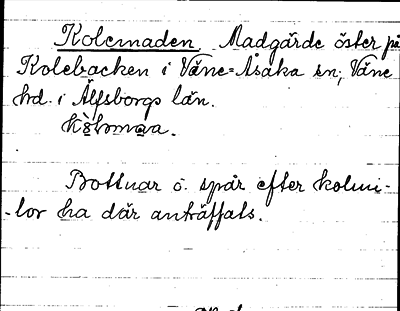 Kolemaden Madgärde öster på
Kolebacken i Väne-Åsaka sn, Väne
hd. i Älfsborgs län.
Bottnar o. spår efter kolmi-
-lor ha där anträffats.